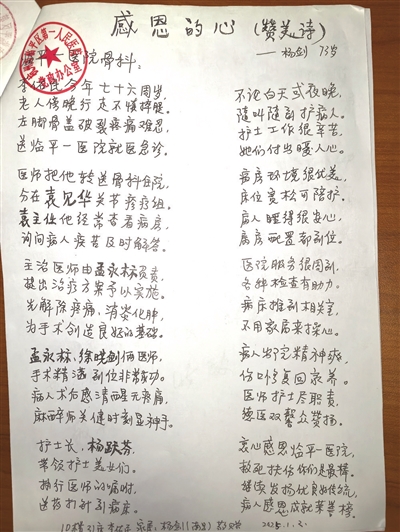 感恩的心(赞美诗)
——杨剑 73岁
平一医院骨科:
今年七十六周岁,
老人傍晚行走不慎摔跤。
左脚骨盖破裂疼痛难忍,
送临平一医院就医急诊。
医师把他转送骨科住院,
分在袁见华关节诊疗组。
袁主任他经常查看病房,
询问病人疾苦及时解答。
主治医师由孟永林负责,
提出治疗方案予以实施。
先解除疼痛,消炎化肿,
为手术创造良好的基础。
孟永林、徐晓剑俩医师,
手术精湛到位非常成功。
病人术后感清醒无疼痛,
麻醉师关健时刻显神手。
护士长,杨跃芬
带领护士美女们。
执行医师的嘱咐,
送药打针到病床。
不论白天或夜晚,
随叫随到护病人。
护士工作很辛苦,
她们付出暖人心。
病房环境很优美,
床位宽松可陪护。
病人睡得很安心,
房房配置都到位。
医院服务很周到,
各种检查有助力。
病床推到相关室,
不用家属来操心。
病人出院精神爽,
伤口修复回家养。
医师护士尽职责,
德医双馨众赞扬。
衷心感恩临平一医院,
救死扶伤你们是最棒。
继续发扬优良的传统,
病人感恩成就荣誉榜。
2025.1.3.